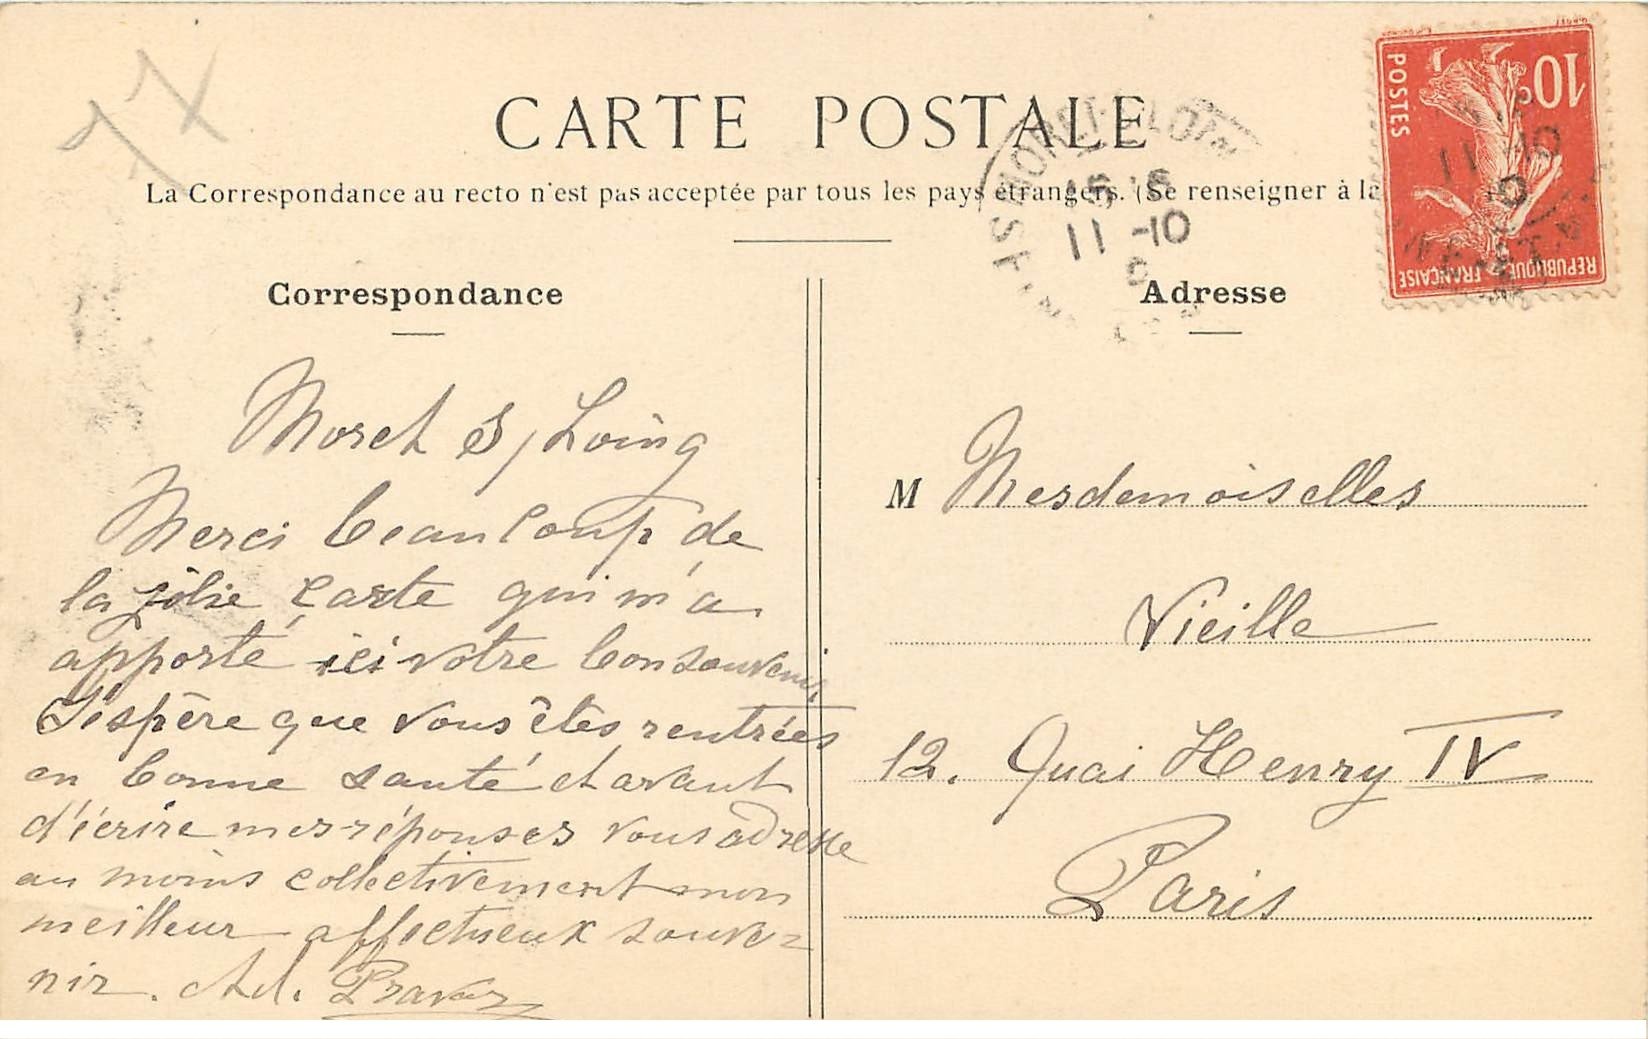 77
CARTE POSTALE
La Correspondance au recto n'est pas acceptée par tous les pays étrangers. (Se renseigner à la
10c
POSTES
REPUBLIQUE FRANÇAISE
MORET-S-LOING
11 -10
Correspondance
Moret s/Loing
Merci beaucoup de
la jolie carte qui m'a
apporté ici votre bon souvenir
J'espère que vous êtes rentrées
en bonne santé et avant
d'écrire mes réponses vous adresse
au moins collectivement mon
meilleur affectueux souve-
nir. Ad.
Adresse
M Mesdemoiselles
Vieille
12. Quai Henry IV
Paris